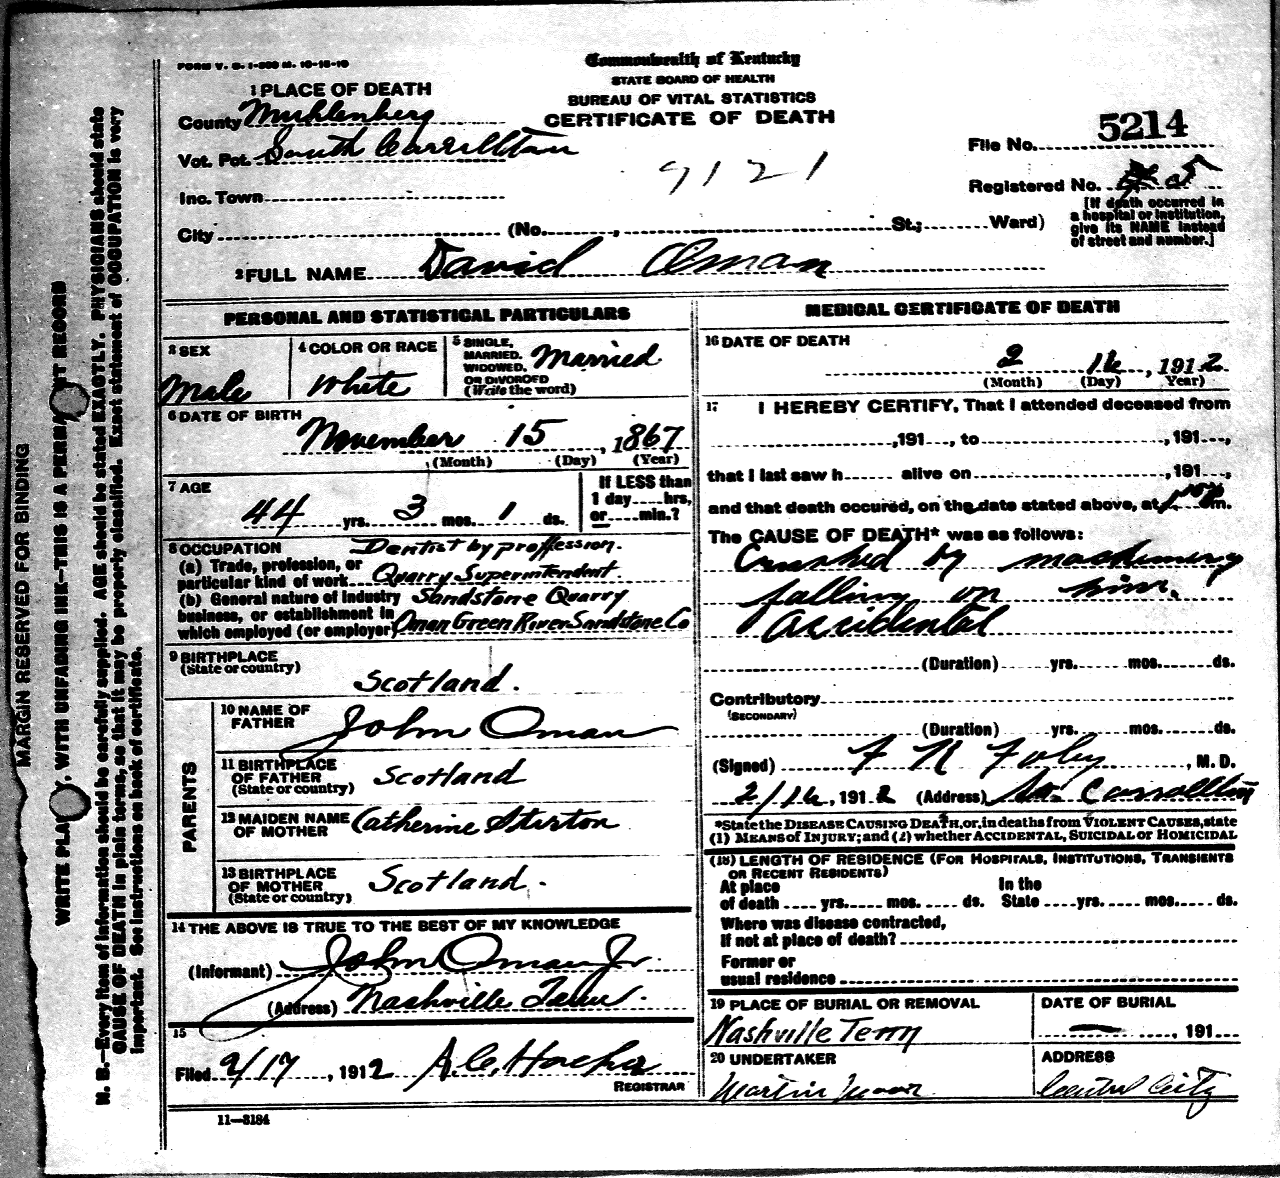 FORM V. S. 1-200 M. 10-18-10
Commonwealth of Kentucky
STATE BOARD OF HEALTH
BUREAU OF VITAL STATISTICS
CERTIFICATE OF DEATH
1 PLACE OF DEATH
County Muhlenberg
Vot. Pct. South Carrollton
Inc. Town
City (No. , St.; Ward)
9121
File No. 5214
Registered No.
[If death occurred in a hospital or institution, give its NAME instead of street and number.]
2 FULL NAME David Oman
PERSONAL AND STATISTICAL PARTICULARS
3 SEX
Male
4 COLOR OR RACE
White
5 SINGLE, MARRIED, WIDOWED, OR DIVORCED (Write the word)
Married
6 DATE OF BIRTH
November 15, 1867
(Month) (Day) (Year)
7 AGE
44 yrs. 3 mos. 1 ds.
If LESS than 1 day hrs, or min.?
8 OCCUPATION Dentist by proffession.
(a) Trade, profession, or particular kind of work Quarry Superintendent
(b) General nature of industry business, or establishment in which employed (or employer) Sandstone Quarry
Oman Green River Sandstone Co
9 BIRTHPLACE
(State or country)
Scotland.
PARENTS
10 NAME OF FATHER John Oman
11 BIRTHPLACE OF FATHER (State or country) Scotland
12 MAIDEN NAME OF MOTHER Catherine Sturton
13 BIRTHPLACE OF MOTHER (State or country) Scotland.
14 THE ABOVE IS TRUE TO THE BEST OF MY KNOWLEDGE
(Informant) John Oman Jr.
(Address) Nashville Tenn.
15
Filed 2/17, 1912
REGISTRAR
11-3184
MEDICAL CERTIFICATE OF DEATH
16 DATE OF DEATH
2 16, 1912
(Month) (Day) Year)
17 I HEREBY CERTIFY, That I attended deceased from
,191 , to ,191 ,
that I last saw h alive on ,191 ,
and that death occured, on the date stated above, at m.
The CAUSE OF DEATH* was as follows:
Crushed by machinery
falling on him.
Accidental
(Duration) yrs. mos. ds.
Contributory
(SECONDARY)
(Duration) yrs. mos. ds.
(Signed) F N Foley, M. D.
2/16, 1912 (Address) So. Carrollton
*State the DISEASE CAUSING DEATH, or, in deaths from VIOLENT CAUSES, state
(1) MEANS OF INJURY; and (2) whether ACCIDENTAL, SUICIDAL or HOMICIDAL
(18) LENGTH OF RESIDENCE (FOR HOSPITALS, INSTITUTIONS, TRANSIENTS
OR RECENT RESIDENTS)
At place of death yrs. mos. ds. In the State yrs. mos. ds.
Where was disease contracted,
If not at place of death?
Former or
usual residence
19 PLACE OF BURIAL OR REMOVAL
Nashville Tenn
DATE OF BURIAL
— , 191
20 UNDERTAKER
Martin Moor
ADDRESS
Central City
MARGIN RESERVED FOR BINDING
WRITE PLAINLY, WITH UNFADING INK—THIS IS A PERMANENT RECORD
N. B.—Every item of information should be carefully supplied. AGE should be stated EXACTLY. PHYSICIANS should state
CAUSE OF DEATH in plain terms, so that it may be properly classified. Exact statement of OCCUPATION is very
important. See instructions on back of certificate.